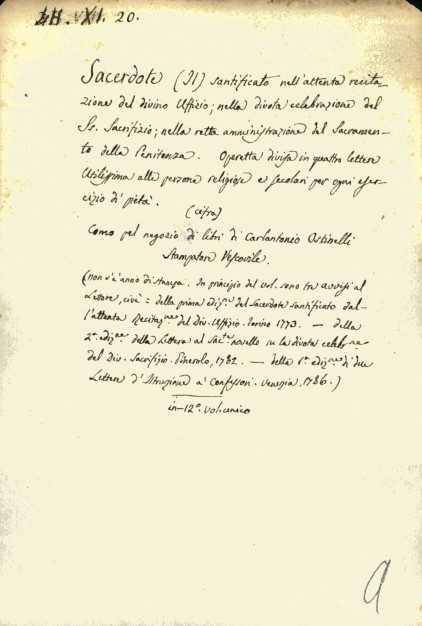 LH. VXI. 20.
Sacerdote (Il) santificato nell'attenta recita-
zione del divino Uffizio; nella divota celebrazione del
Ss. Sacrifizio; nella retta amministrazione del Sacramen-
to della Penitenza. Operetta divisa in quattro lettere
Utilissima alle persone religiose e secolari per ogni eser-
cizio di pietà.
(cifra)
Como pel negozio di libri di Carlantonio Ostinelli
Stampatore Vescovile.
(non v'è anno di stampa. In principio del vol. sono tre avvisi al
Lettore, cioè = della prima ediz.e del Sacerdote santificato dal-
l'attenta Recitaz.ne del Div. Uffizio. Torino 1773. — della
2.a ediz.ne della Lettera al Sac.te novello su la divota celebr.ne
del Div. Sacrifizio. Pinerolo, 1782. — della 1.a ediz.ne di due
Lettere d'Istruzione a' Confessori. Venezia, 1786.)
in-12.o vol. unico